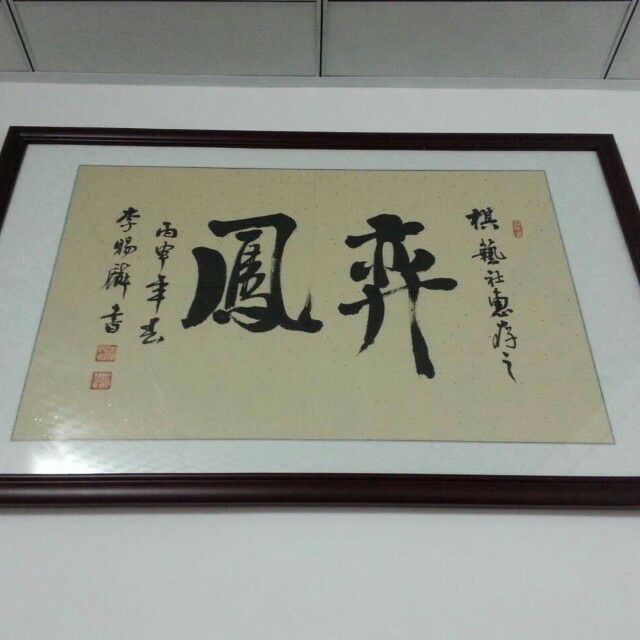 棋藝社惠存之
弈鳳
丙申年春
李賜麟書